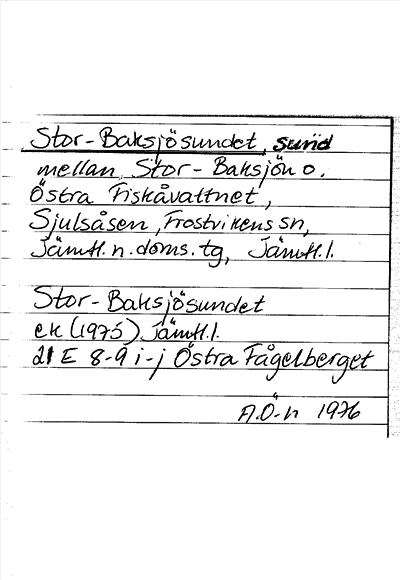 Stor-Baksjösundet, sund
mellan Stor-Baksjön o.
Östra Fiskåvattnet,
Sjulsåsen, Frostvikens sn,
Jämtl. n. doms. tg, Jämtl. l.
Stor-Baksjösundet
ek (1975) Jämtl. l.
21 E 8-9 i-j Östra Fågelberget
A.Ö-n 1976